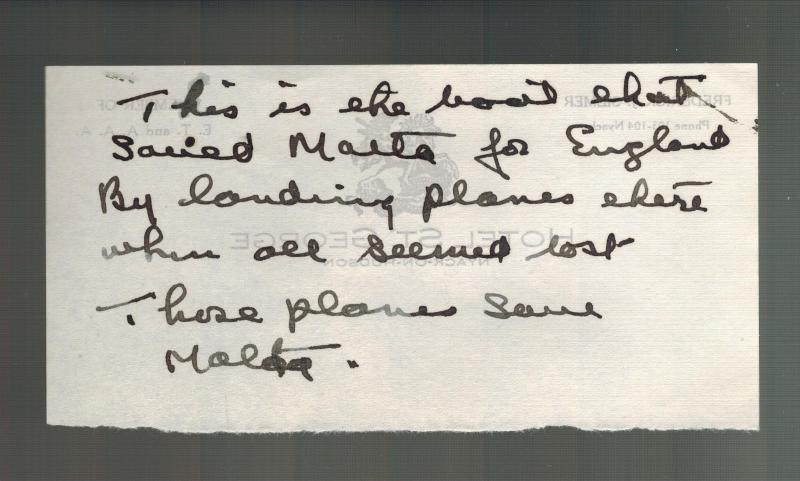 This is the boat that
Saved Malta for England
By landing planes there
when all seemed lost
Those planes save
Malta.
HOTEL ST. GEORGE
NYACK-ON-HUDSON
Phone 103-104 Nyack
E. T. and A. A. A.